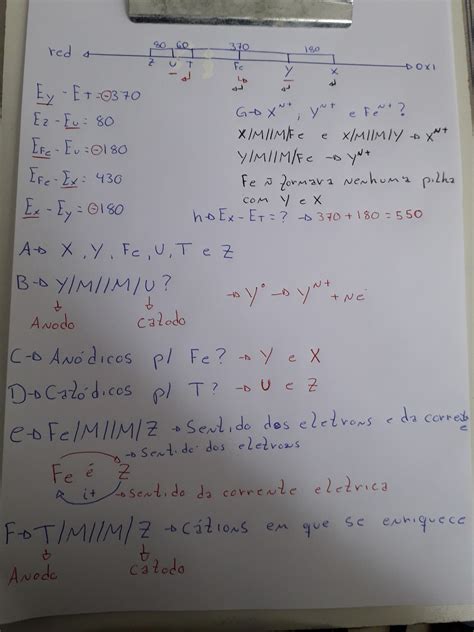 80 60 370 180
red Z U T Fe Y X oxi
Ey - ET = -370
Ez - Eu = 80
EFe - Eu = -180
EFe - Ex = 430
Ex - Ey = -180
G→ X^N+, Y^N+ e Fe^N+?
X/M//M/Fe e X/M//M/Y → X^N+
Y/M//M/Fe → Y^N+
Fe ñ formava nenhuma pilha
com Y e X
h→ Ex - ET = ? → 370 + 180 = 550
A→ X, Y, Fe, U, T e Z
B→ Y/M//M/U?
→ Y° → Y^N+ + Né
Anodo Catodo
C→ Anódicos p/ Fe? → Y e X
D→ Catódicos p/ T? → U e Z
e→ Fe/M//M/Z → Sentido dos eletrons e da corrente
→ Sentido dos eletrons
Fe é Z
i+ → Sentido da corrente eletrica
F→ T/M//M/Z → Cátions em que se enriquece
Anodo Catodo